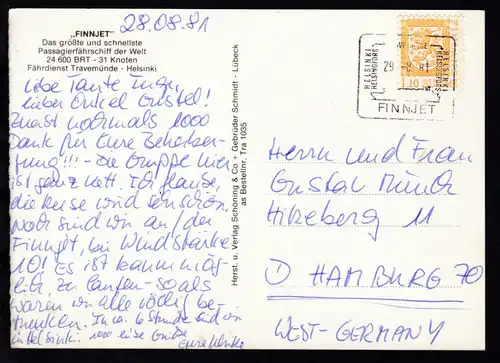 28.08.81
„FINNJET"
Das größte und schnellste
Passagierfährschiff der Welt
24 600 BRT - 31 Knoten
Fährdienst Travemünde - Helsinki
Liebe Tante Inge,
lieber Onkel Gustel!
Zuerst nochmals 1000
Dank für Eure Beherber-
gung!!! - Die Gruppe hier
ist ganz nett. Ich glaube,
die Reise wird sehr schön.
Noch sind wir an/der
Finnjet, bei Windstärke
10! Es ist kaum mög-
lich, zu laufen - so als
wären wir alle völlig be-
trunken. In ca. 6 Stunden sind wir in
Helsinki. 1000 liebe Grüße
Eure
Herst. u. Verlag Schöning & Co + Gebrüder Schmidt - Lübeck
as Bestellnr. Tra 1035
HELSINKI
HELSINGFORS
29.-8.81
HELSINKI
HELSINGFORS
FINNJET
1,10
Herrn und Frau
Gustav Münch
Hikeberg 11
D HAMBURG 70
WEST-GERMANY